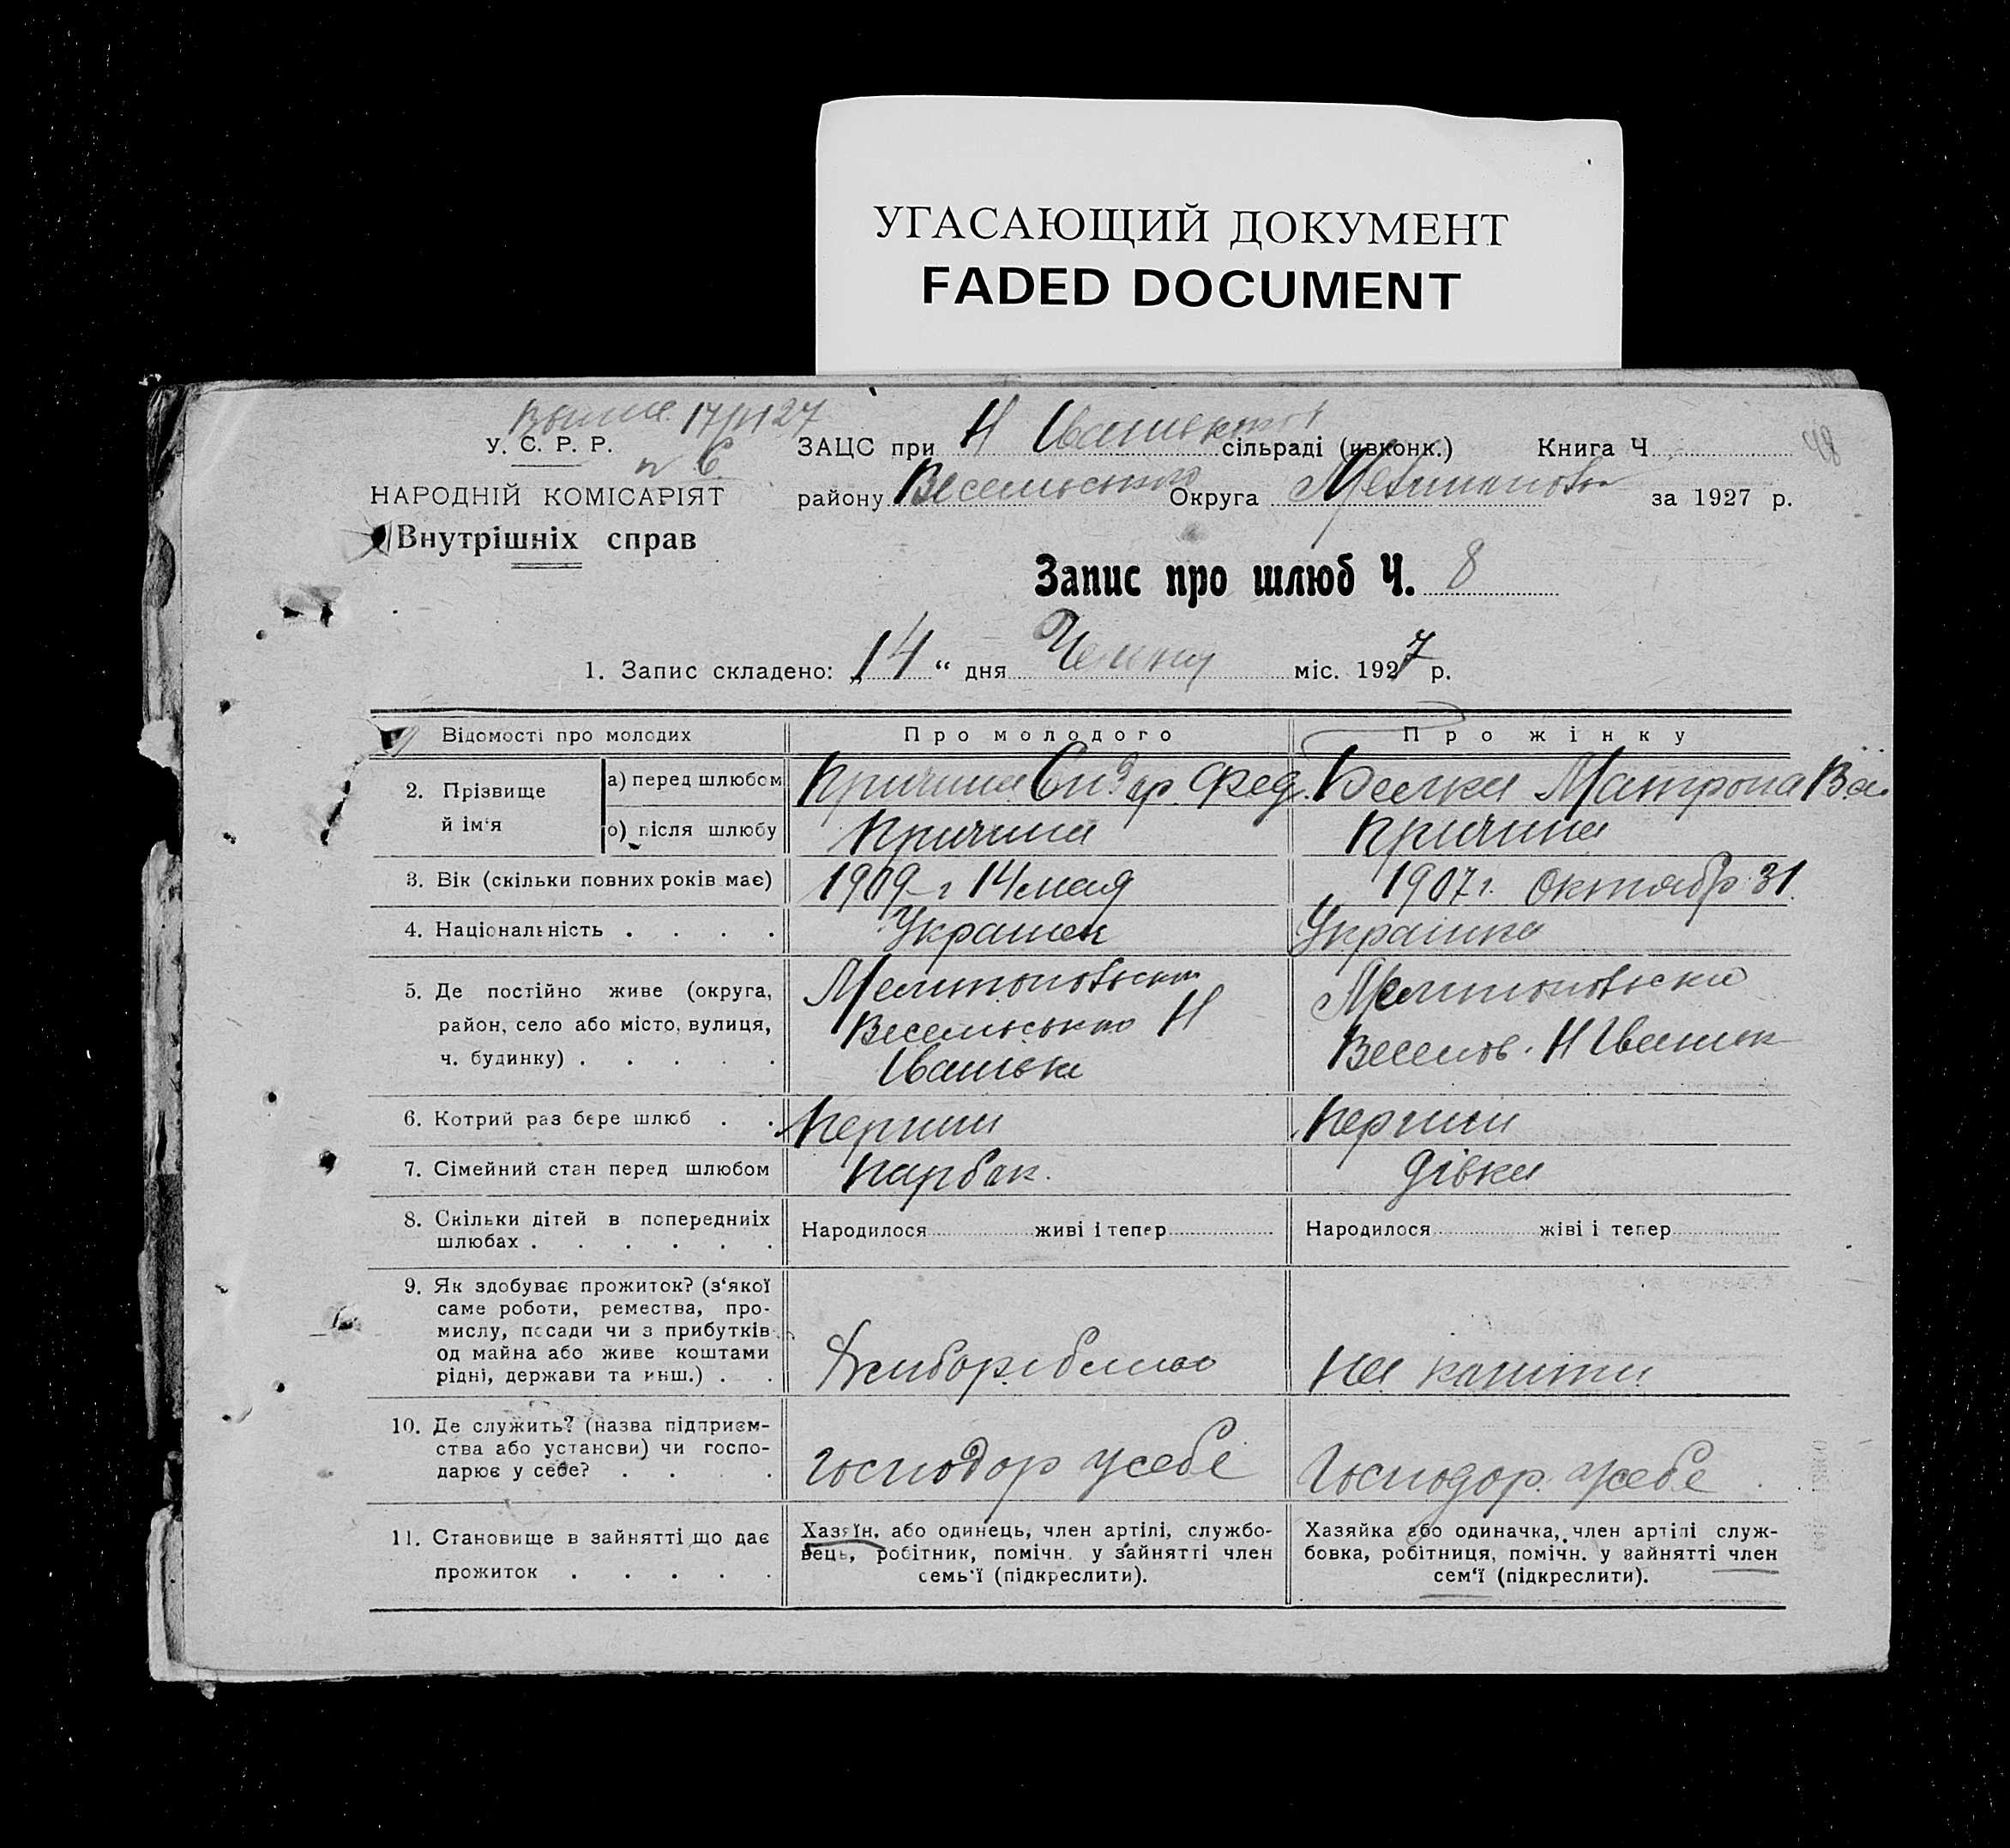 УГАСАЮЩИЙ ДОКУМЕНТ
FADED DOCUMENT
У. С. Р. Р.
НАРОДНІЙ КОМІСАРІЯТ
Внутрішніх справ
ЗАЦС при Н сільраді (ивконк.) Книга Ч 48
району Веселського Округа за 1927 р.
Запис про шлюб Ч. 8
1. Запис складено: „ 14 “ дня міс. 1927 р.
Відомості про молодих Про молодого Про жінку
2. Прізвище й ім‘я
а) перед шлюбом Причина Сидор. Фед. Матрона
б) після шлюбу Причина Причина
3. Вік (скільки повних років має) 1909 г 14 мая 1907 г. Октябр 31.
4. Національність . . . . Украинец Украинка
5. Де постійно живе (округа, Мелитопольска Мелитопольска
район, село або місто, вулиця, Весельського Н Веселов. Н Иванівк
ч. будинку) . . . . . Иванівка
6. Котрий раз бере шлюб . . Перший Перший
7. Сімейний стан перед шлюбом Парбок. дівка
8. Скільки дітей в попередниіх Народилося живі і тепер Народилося жіві і тепер
шлюбах . . . . . .
9. Як здобуває прожиток? (з‘якої
саме роботи, ремества, про-
мислу, посади чи з прибутків
од майна або живе коштами
рідні, держави та инш.) . . На кошти
10. Де служить? (назва підприєм-
ства або установи) чи госпо-
дарює у себе? . . . . Господор усебе Господор. усебе
11. Становище в зайнятті що дає
прожиток . . . . .
Хазяїн, або одинець, член артілі, службо-
вець, робітник, помічн. у зайнятті член
семь‘ї (підкреслити).
Хазяйка або одиначка, член артілі служ-
бовка, робітниця, помічн. у зайнятті член
сем‘ї (підкреслити).